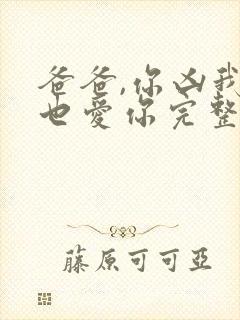 爸爸,你凶我
也愛你完整
藤原可可亞